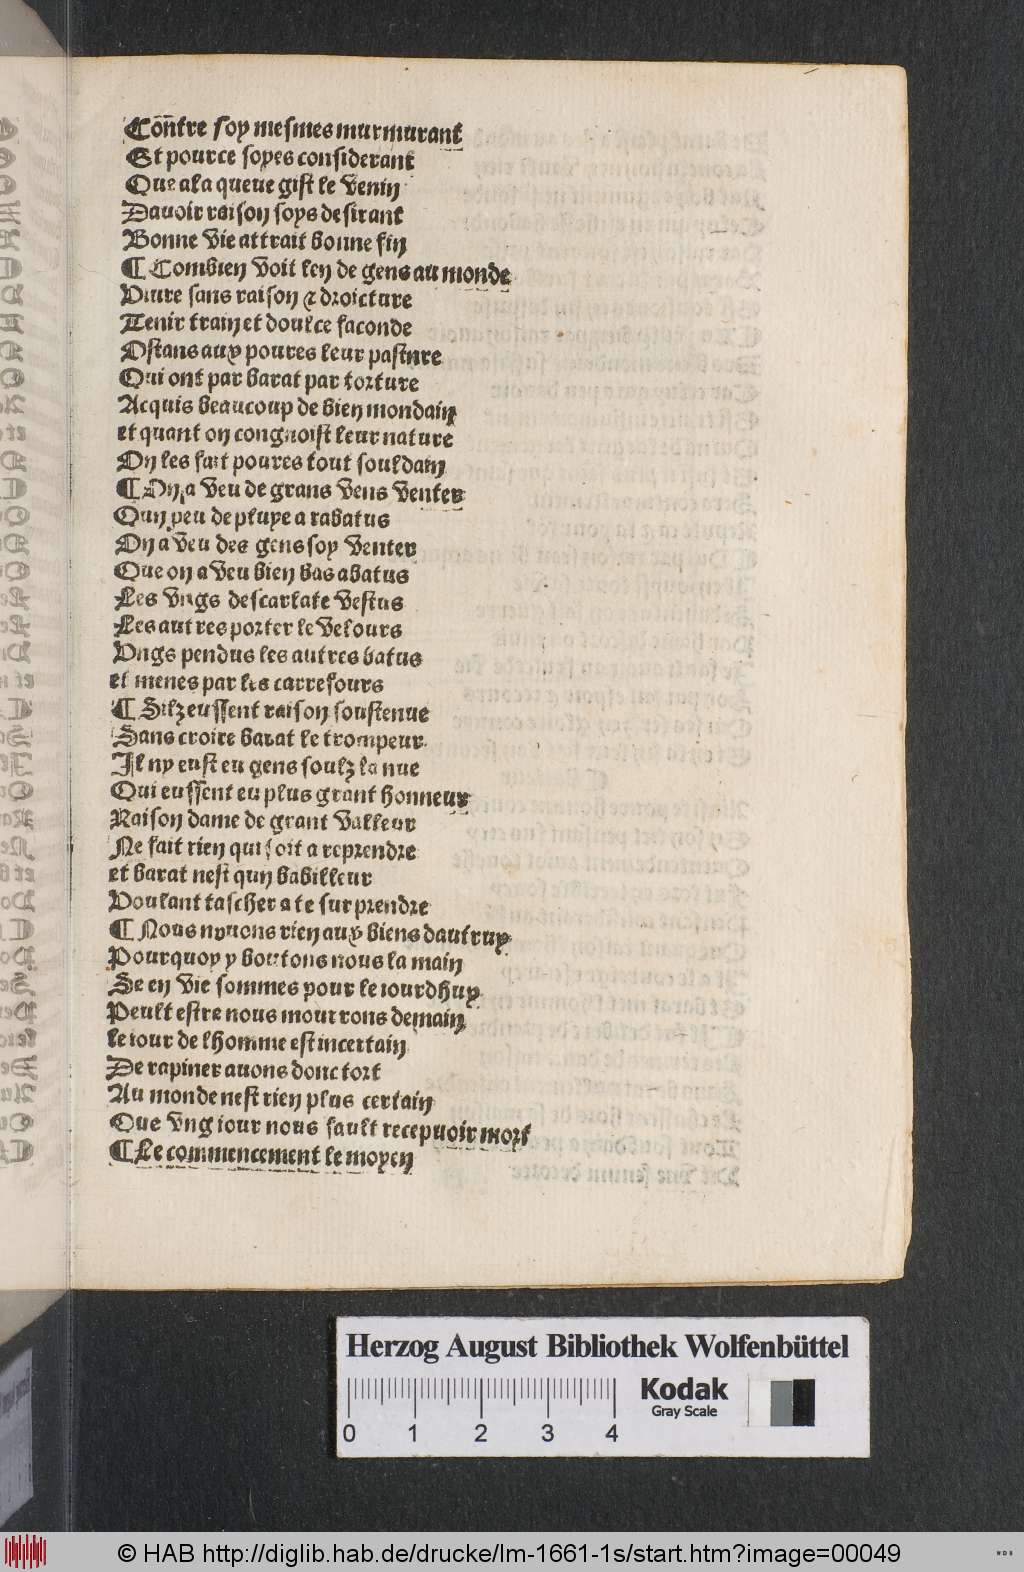 Cōntre soy mesmes murmurant
Et pource soyes considerant
Que a la queue gist le venin
Dauoir raison soys desirant
Bonne vie attrait bonne fin
¶ Combien voit len de gens au monde
Viure sans raison ⁊ droicture
Tenir train et doulce faconde
Ostans aux poures leur pasture
Qui ont par barat par torture
Acquis beaucoup de bien mondain
et quant on congnoist leur nature
On les fait poures tout souldain
¶ On a veu de grans vens venter
Quun peu de pluye a rabatus
On a veu des gens soy venter
Que on a veu bien bas abatus
Les vngs descarlate vestus
Les autres porter le velours
Vngs pendus les autres batus
et menes par les carrefours
¶ Silz eussent raison soustenue
Sans croire barat le trompeur
Il ny eust eu gens soulz la nue
Qui eussent eu plus grant honneur
Raison dame de grant valleur
Ne fait rien qui soit a reprendre
et barat nest quun babilleur
Voulant tascher a te surprendre
¶ Nous nauons rien aux biens dautruy
Pourquoy y boutons nous la main
Se en vie sommes pour le iourdhuy
Peult estre nous mourrons demain
le iour de lhomme est incertain
De rapiner auons donc tort
Au monde nest rien plus certain
Que vng iour nous fault recepuoir mort
¶ Le commencement le moyen
Herzog August Bibliothek Wolfenbüttel
Kodak
Gray Scale
0 1 2 3 4
© HAB http://diglib.hab.de/drucke/lm-1661-1s/start.htm?image=00049